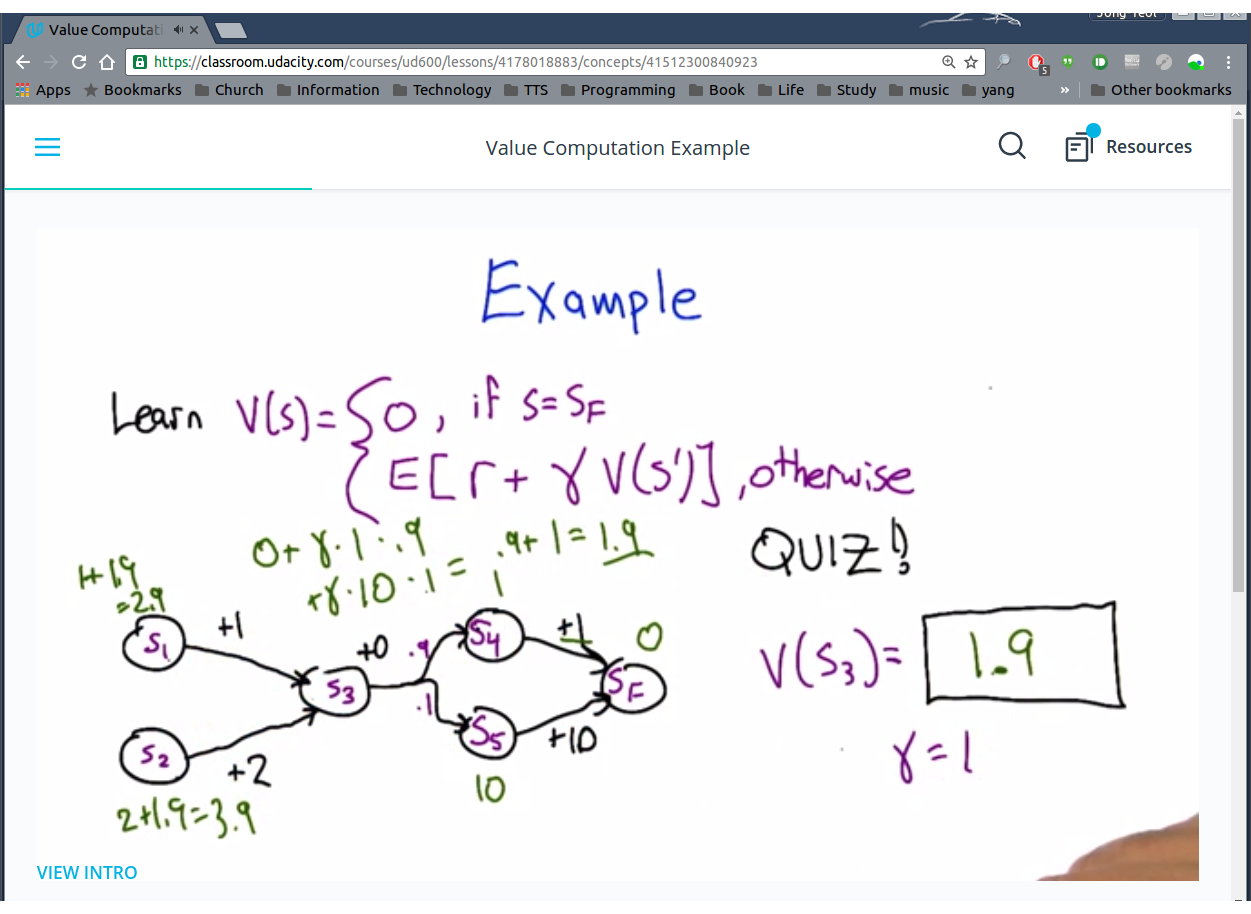 Value Computati
Jong Yeol
https://classroom.udacity.com/courses/ud600/lessons/4178018883/concepts/41512300840923
5
Apps Bookmarks Church Information Technology TTS Programming Book Life Study music yang » Other bookmarks
Value Computation Example
Resources
Example
Learn V(s)= { 0, if s=SF
E[r+ γV(s')], otherwise
0+γ·1·.9
+γ·10·.1 = .9+1=1.9
QUIZ!
1+1.9
=2.9
S1
+1
+0
.9
1
S4
+1
0
S3
.1
SF
V(S3)= 1.9
S2
+2
S5
+10
γ=1
2+1.9=3.9
10
VIEW INTRO